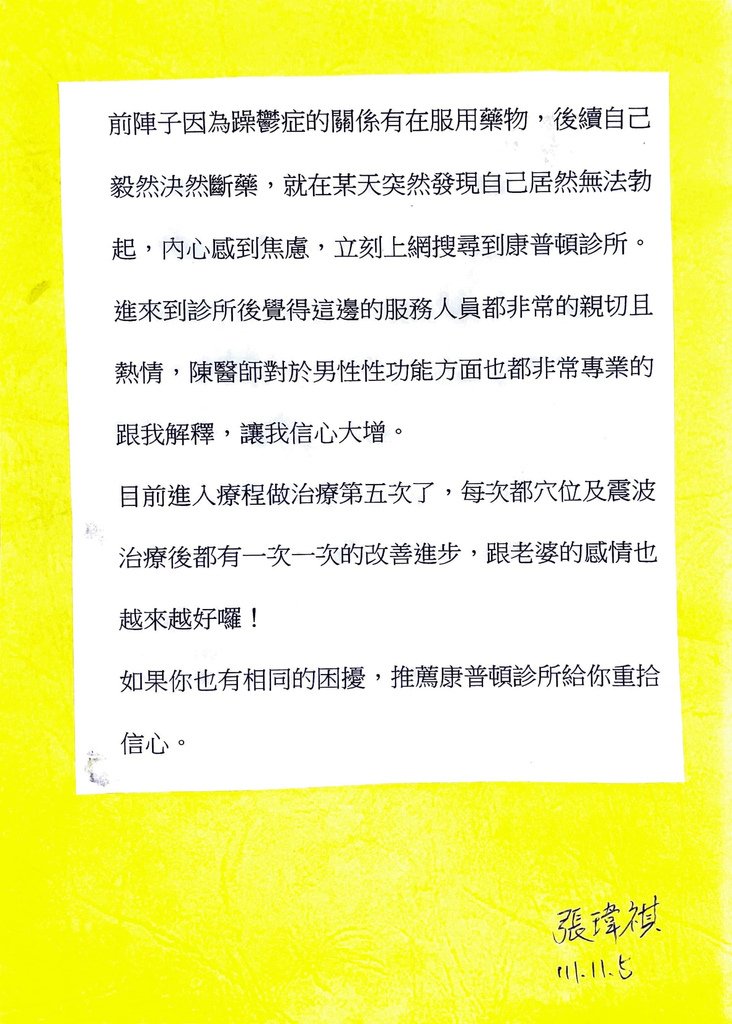 前陣子因為躁鬱症的關係有在服用藥物，後續自己
毅然決然斷藥，就在某天突然發現自己居然無法勃
起，內心感到焦慮，立刻上網搜尋到康普頓診所。
進來到診所後覺得這邊的服務人員都非常的親切且
熱情，陳醫師對於男性性功能方面也都非常專業的
跟我解釋，讓我信心大增。
目前進入療程做治療第五次了，每次都穴位及震波
治療後都有一次一次的改善進步，跟老婆的感情也
越來越好囉！
如果你也有相同的困擾，推薦康普頓診所給你重拾
信心。
張瑋祺
111.11.5